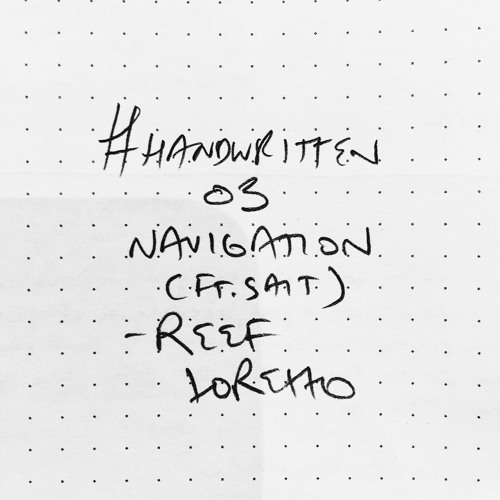 #HANDWRITTEN
03
NAVIGATION
(FT. SAIT)
-REEF
LORETTO